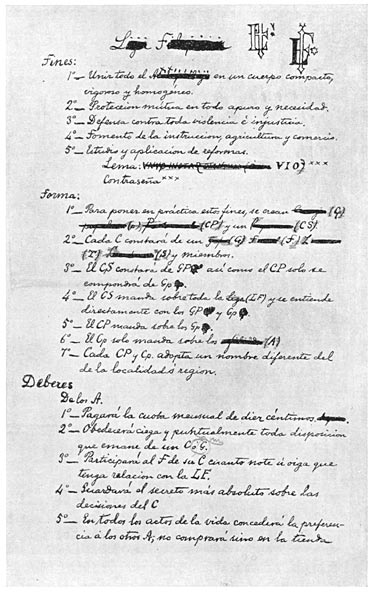 Liga Filipina LF LF
Fines:
1º_ Unir todo el en un cuerpo compacto,
vigoroso y homogéneo.
2º_ Protección mutua en todo apuro y necesidad.
3º_ Defensa contra toda violencia é injusticia.
4º_ Fomento de la instruccion, agricultura y comercio.
5º_ Estudio y aplicacion de reformas.
Lema: VIO xxx
Contraseña xxx
Forma:
1º_ Para poner en práctica estos fines, se crean (C)
(CP) y un (CS).
2º_ Cada C constará de un (G) (F)
(T) (S) y miembros.
3º_ El CS constará de GP así como el CP solo se
compondrá de Gp
4º_ El CS manda sobre toda la Liga (LF) y se entiende
directamente con los GP y Gp
5º_ El CP manda sobre los Gp
6º_ El Gp solo manda sobre los (A)
7º_ Cada CP y Cp. adopta un nombre diferente del
de la localidad ó region.
Deberes
De los A.
1º_ Pagará la cuota mensual de diez céntimos.
2º_ Obedecerá ciega y puntualmente toda disposicion
que emane de un C ó G.
3º_ Participará al F de su C cuanto note ú oiga que
tenga relacion con la LF.
4º_ Guardará el secreto más absoluto sobre las
decisiones del C
5º_ En todos los actos de la vida concederá la preferen-
cia á los otros A; no comprará sino en la tienda